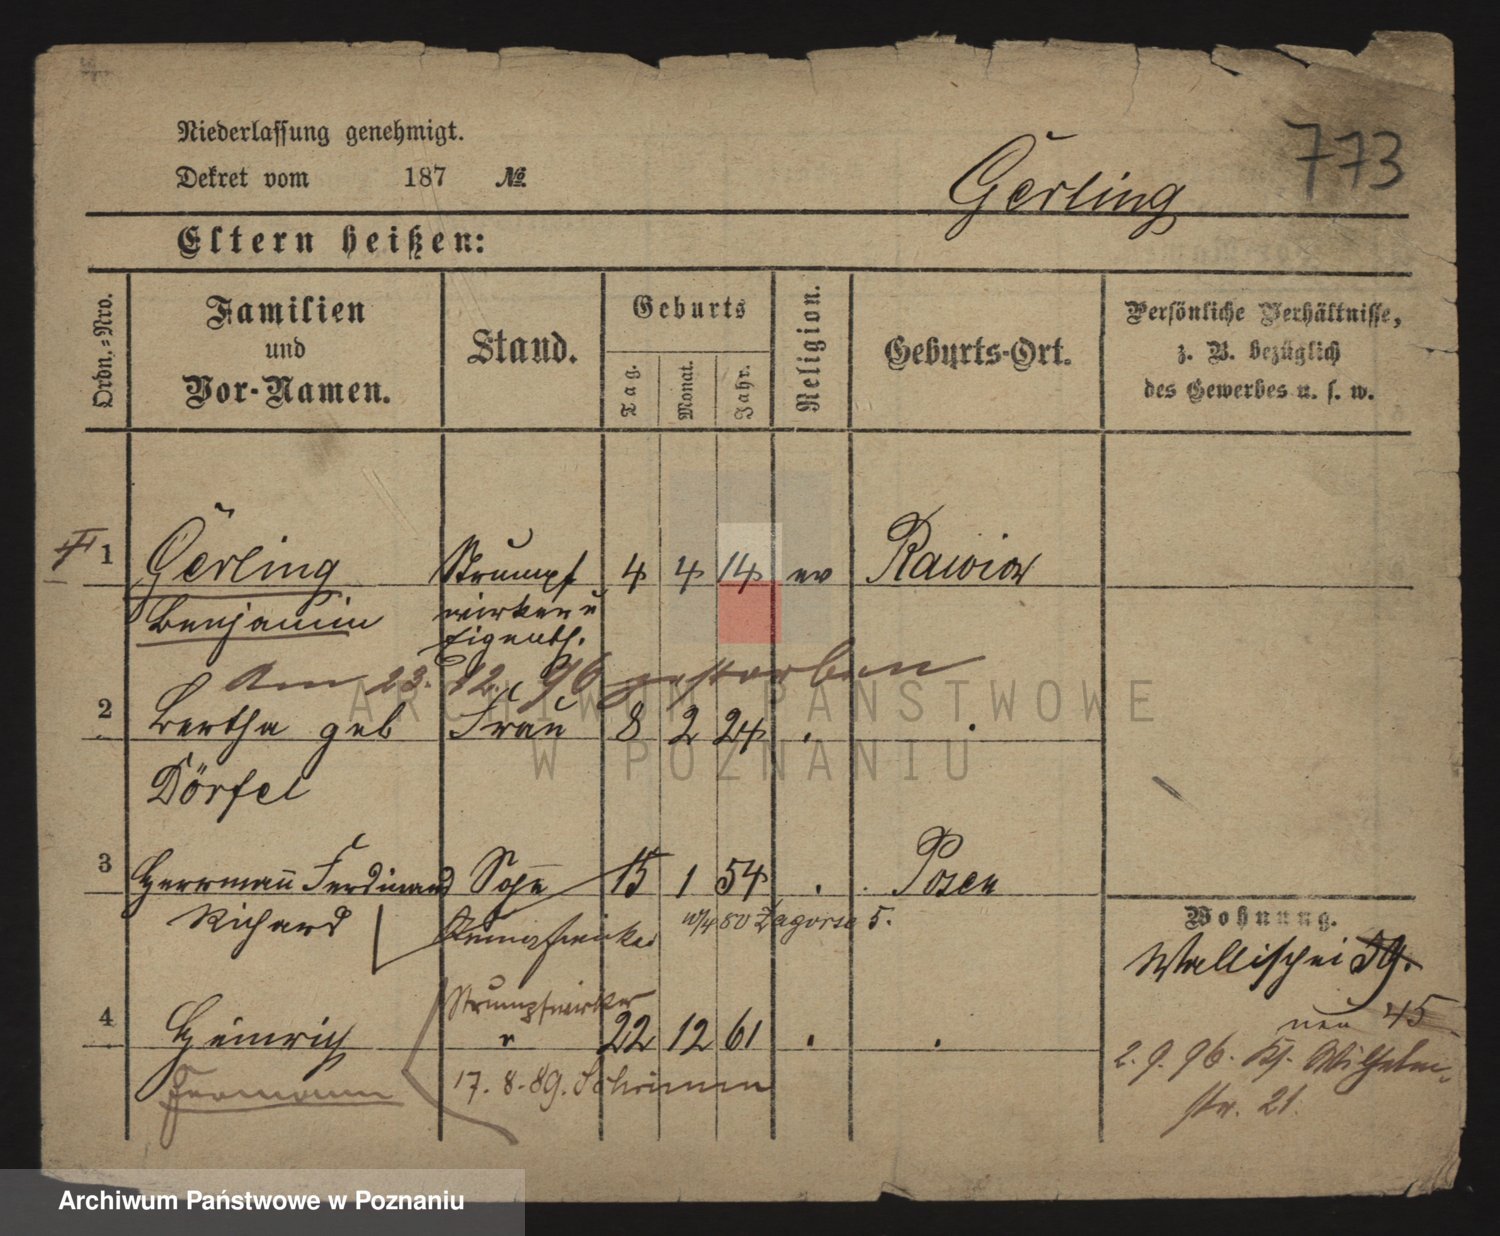 773
Niederlassung genehmigt.
Dekret vom 187 №
Gerling
Eltern heißen:
Ordn.=Nro.
Familien und Vor-Namen.
Stand.
Geburts
Tag.
Monat.
Jahr.
Religion.
Geburts-Ort.
Persönliche Verhältnisse,
z. B. bezüglich
des Gewerbes u. s. w.
1 Gerling Strumpf 4 4 14 ev Rawicz
Benjamin wirker u
Eigenth.
Am 23. 12. 96 gestorben
2 Bertha geb Frau 8 2 24 . .
Dörfel
3 Herrmann Ferdinand Sohn 15 1 54 . Posen
Richard Strumpfwirker 80 Zagorze 5.
Wohnung.
Wallischei 59.
neu 45
Strumpfwirker
4 Heinrich " 22 12 61 . .
Hermann 17. 8. 89. Schrimm
2. 9. 96. Wilhelm-
str. 21.
ARCHIWUM PAŃSTWOWE
W POZNANIU
Archiwum Państwowe w Poznaniu